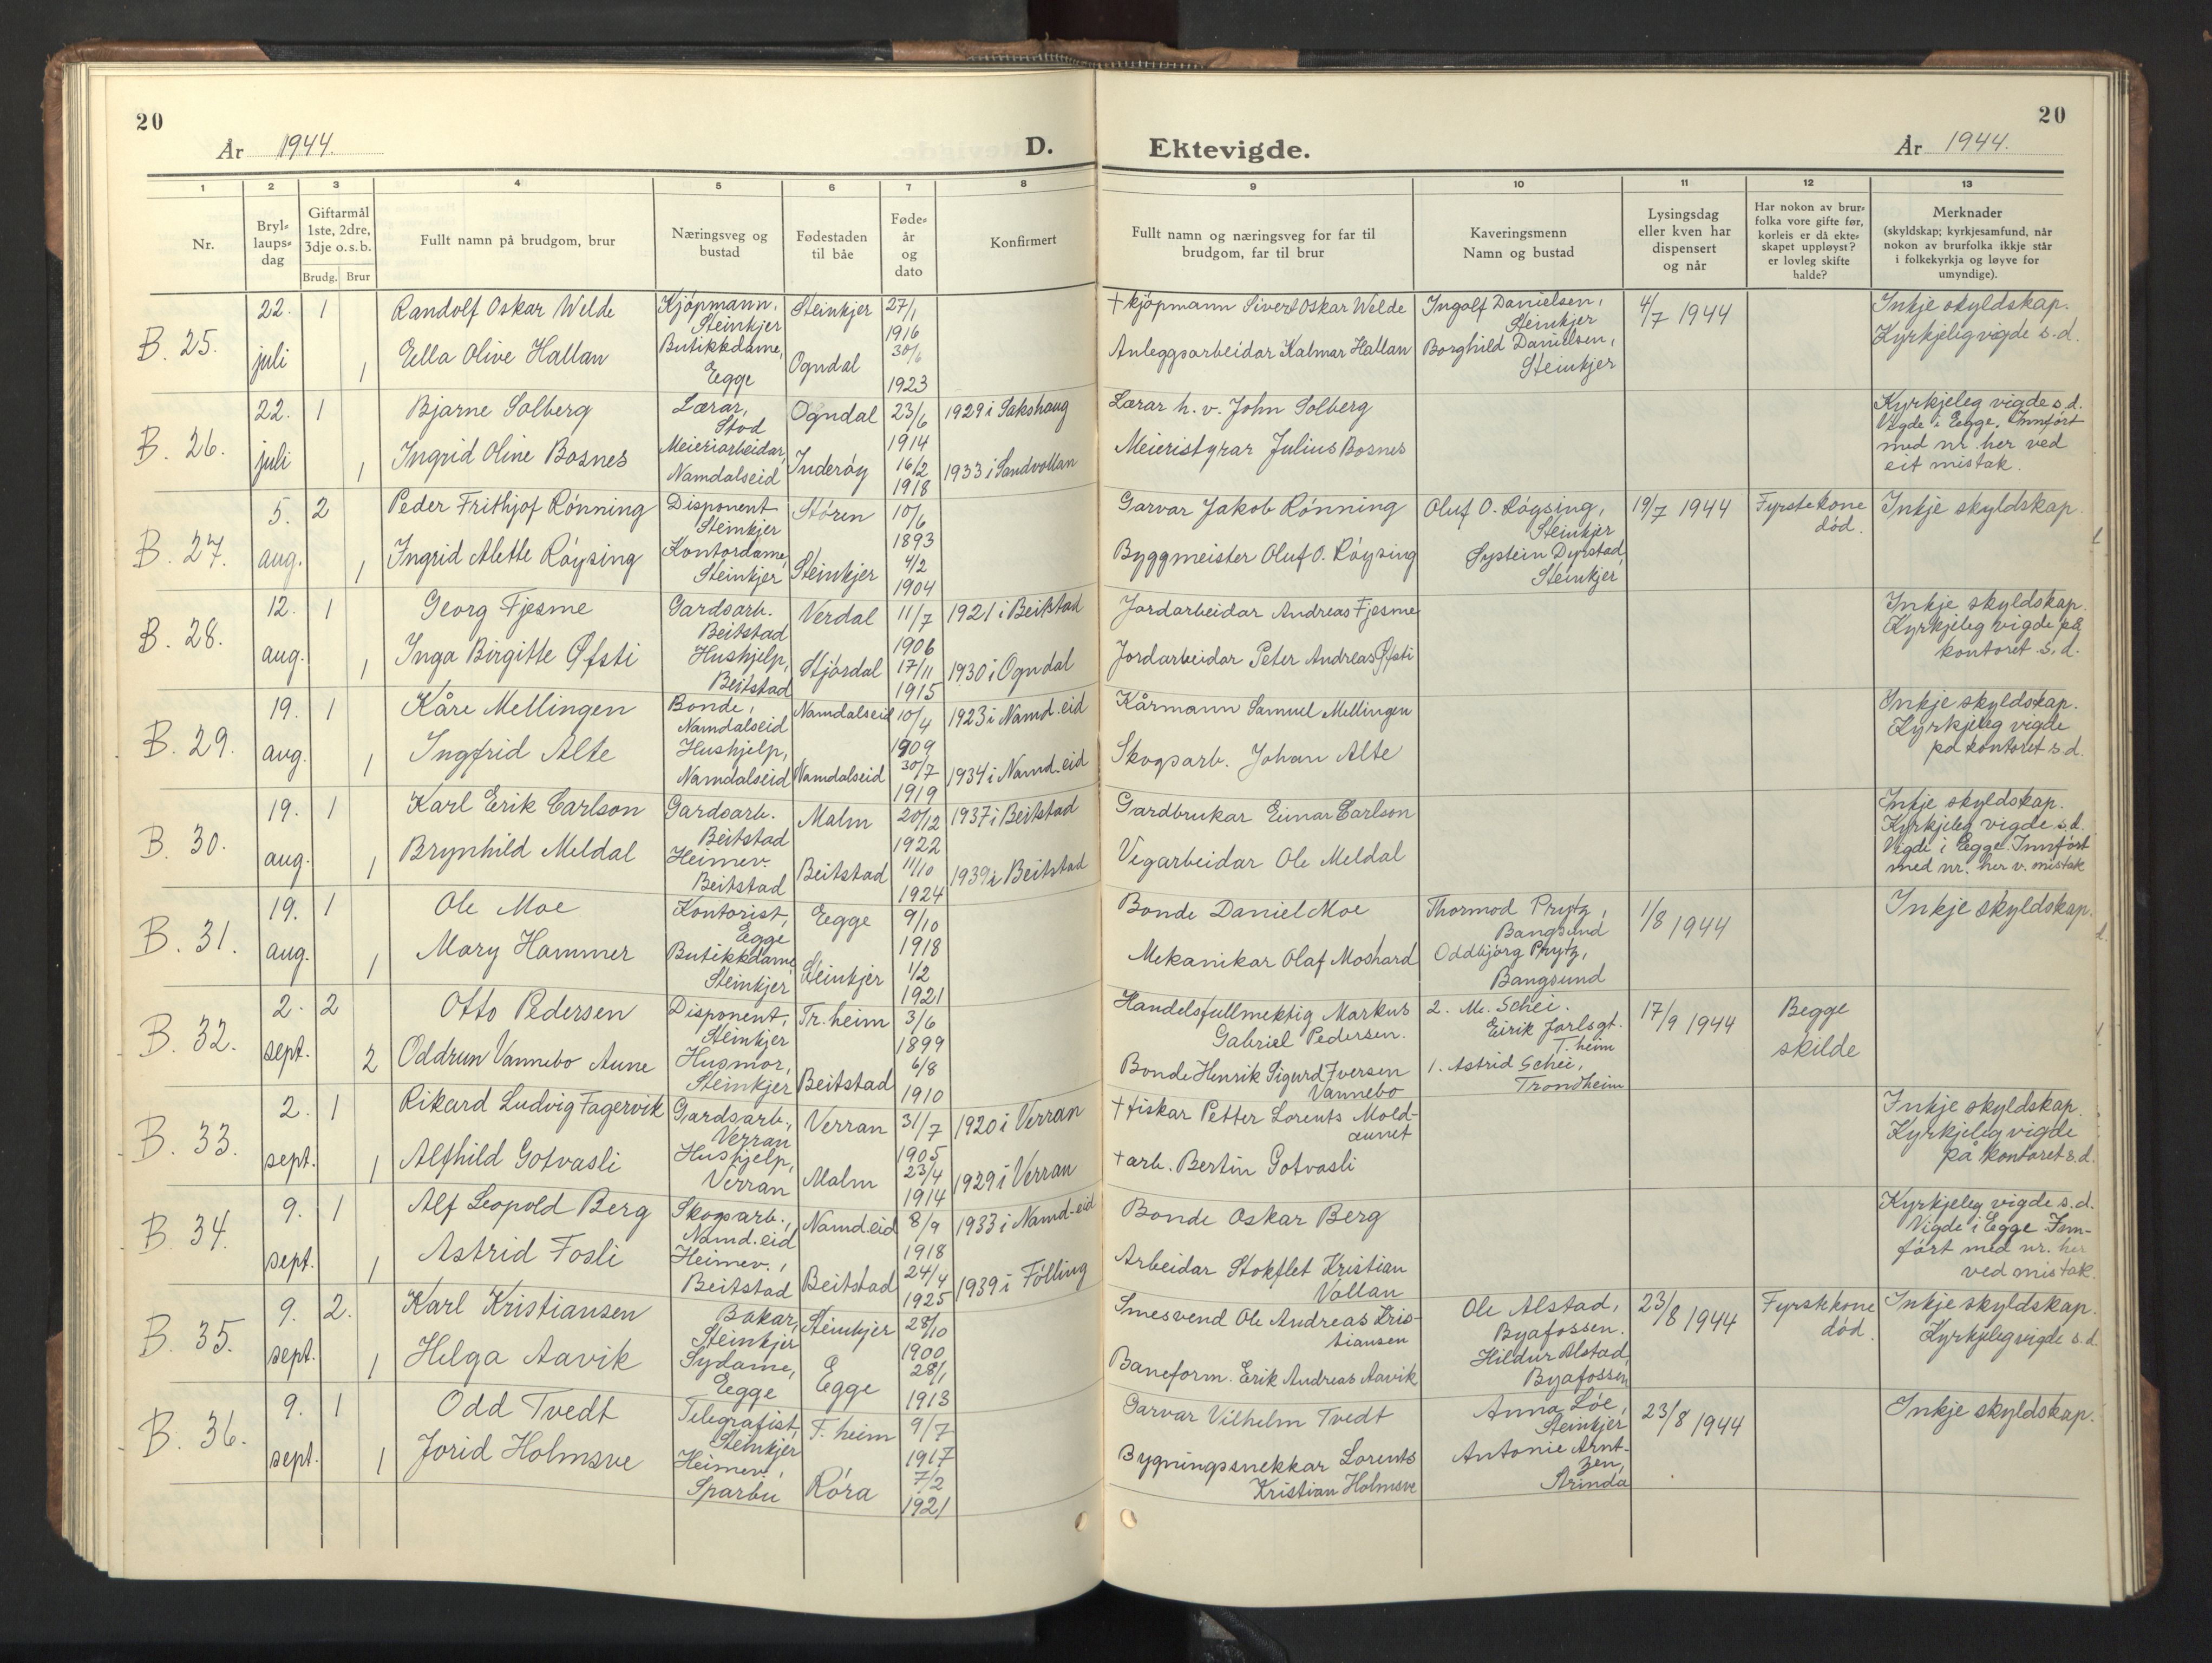 20
År 1944.
D.
Ektevigde.
År 1944.
20
1 2 3 4 5 6 7 8 9 10 11 12 13
Nr.
Bryl-
laups-
dag
Giftarmål
1ste, 2dre,
3dje o.s.b.
Brudg. Brur
Fullt namn på brudgom, brur
Næringsveg og
bustad
Fødestaden
til båe
Føde-
år
og
dato
Konfirmert
Fullt namn og næringsveg for far til
brudgom, far til brur
Kaveringsmenn
Namn og bustad
Lysingsdag
eller kven har
dispensert
og når
Har nokon av brur-
folka vore gifte før,
korleis er då ekte-
skapet uppløyst?
er lovleg skifte
halde?
Merknader
(skyldskap; kyrkjesamfund, når
nokon av brurfolka ikkje står
i folkekyrkja og løyve for
umyndige).
B. 25.
22. juli
1
Randolf Oskar Welde
Kjøpmann,
Steinkjer
Steinkjer
27/1
1916
+ kjøpmann Sivert Oskar Welde
Ingolf Danielsen,
Steinkjer
4/7 1944
Inkje skyldskap.
Kyrkjeleg vigde s.d.
1
Eella Olive Hallan
Butikkdame,
Egge
Ogndal
30/6
1923
Anleggsarbeidar Kalmar Hallan
Borghild Danielsen,
Steinkjer
B. 26.
22. juli
1
Bjarne Solberg
Lærar,
Stod
Ogndal
23/6
1914
1929 i Sakshaug
Lærar h. v. John Solberg
Kyrkjeleg vigde s.d.
Vigde i Egge. Innført
med nr. her ved
eit mistak.
1
Ingrid Oline Bosnes
Meieriarbeidar,
Namdalseid
Inderøy
16/2
1918
1933 i Sandvollan
Meieristyrar Julius Bosnes
B. 27.
5. aug.
2
Peder Frithjof Rønning
Disponent
Steinkjer
Støren
10/6
1893
Garvar Jakob Rønning
Oluf O. Røysing,
Steinkjer
19/7 1944
Fyrste kone
død.
Inkje skyldskap.
1
Ingrid Alette Røysing
Kontordame,
Steinkjer
Steinkjer
4/2
1904
Byggmeister Oluf O. Røysing
Øystein Dyrstad,
Steinkjer
B. 28.
12. aug.
1
Georg Fjesme
Gardsarb.
Beitstad
Verdal
11/7
1906
1921 i Beitstad
Jordarbeidar Andreas Fjesme
Inkje skyldskap.
Kyrkjeleg vigde på
kontoret s.d.
1
Inga Birgitte Øfsti
Hushjelp,
Beitstad
Stjørdal
17/11
1915
1930 i Ogndal
Jordarbeidar Peter Andreas Øfsti
B. 29.
19. aug.
1
Kåre Mellingen
Bonde,
Namdalseid
Namdalseid
10/4
1909
1923 i Namd.eid
Kårmann Samuel Mellingen
Inkje skyldskap.
Kyrkjeleg vigde
på kontoret s.d.
1
Ingfrid Alte
Hushjelp,
Namdalseid
Namdalseid
30/7
1919
1934 i Namd.eid
Skogsarb. Johan Alte
B. 30.
19. aug.
1
Karl Erik Carlson
Gardsarb.
Beitstad
Malm
20/12
1922
1937 i Beitstad
Gardbrukar Einar Carlson
Inkje skyldskap.
Kyrkjeleg vigde s.d.
Vigde i Egge. Innført
med nr. her v. mistak
1
Brynhild Meldal
Heimev.
Beitstad
Beitstad
11/10
1924
1939 i Beitstad
Vegarbeidar Ole Meldal
B. 31.
19. aug.
1
Ole Moe
Kontorist,
Egge
Egge
9/10
1918
Bonde Daniel Moe
Thormod Prytz,
Bangsund
1/8 1944
Inkje skyldskap.
1
Mary Hammer
Butikkdame
Steinkjer
Steinkjer
1/2
1921
Mekanikar Olaf Moshard
Oddbjørg Prytz,
Bangsund
B. 32.
2. sept.
2
Otto Pedersen
Disponent,
Steinkjer
Tr.heim
3/6
1899
Handelsfullmektig Markus
Gabriel Pedersen.
2. M. Schei.
Eirik Jarlsgt.
T.heim
17/9 1944
Begge
skilde
2
Oddrun Vannebo Aune
Husmor,
Steinkjer
Beitstad
6/8
1910
Bonde Henrik Sigurd Iversen
Vannebo
1. Astrid Schei,
Trondheim
B. 33.
2. sept.
1
Rikard Ludvig Fagervik
Gardsarb.,
Verran
Verran
31/7
1905
1920 i Verran
+ fiskar Petter Lorents Mold-
aunet
Inkje skyldskap.
Kyrkjeleg vigde
på kontoret s.d.
1
Alfhild Gotvasli
Hushjelp,
Verran
Malm
23/4
1914
1929 i Verran
+ arb. Bertin Gotvasli
B. 34.
9. sept.
1
Alf Leopold Berg
Skogsarb.,
Namd.eid
Namd.eid
8/9
1918
1933 i Namd.eid
Bonde Oskar Berg
Kyrkjeleg vigde s.d.
Vigde i Egge Inn-
ført med nr. her
ved mistak.
1
Astrid Fosli
Heimev.,
Beitstad
Beitstad
24/4
1925
1939 i Følling
Arbeidar Stokflet Kristian
Vollan
B. 35.
9. sept.
2.
Karl Kristiansen
Bakar,
Steinkjer
Steinkjer
28/10
1900
Smesvend Ole Andreas Kris-
tiansen
Ole Alstad,
Byafossen.
23/8 1944
Fyrste kone
død.
Inkje skyldskap.
Kyrkjeleg vigde s.d.
1
Helga Aavik
Sydame,
Egge
Egge
28/1
1913
Baneform. Erik Andreas Aavik
Hildur Alstad,
Byafossen
B. 36.
9. sept.
1
Odd Tvedt
Telegrafist,
Steinkjer
T.heim
9/7
1917
Garvar Vilhelm Tvedt
Anna Løe,
Steinkjer
23/8 1944
Inkje skyldskap.
1
Jorid Holmsve
Heimev.,
Sparbu
Røra
7/2
1921
Bygningssnekkar Lorents
Kristian Holmsve
Antonie Arnt-
zen,
Strinda